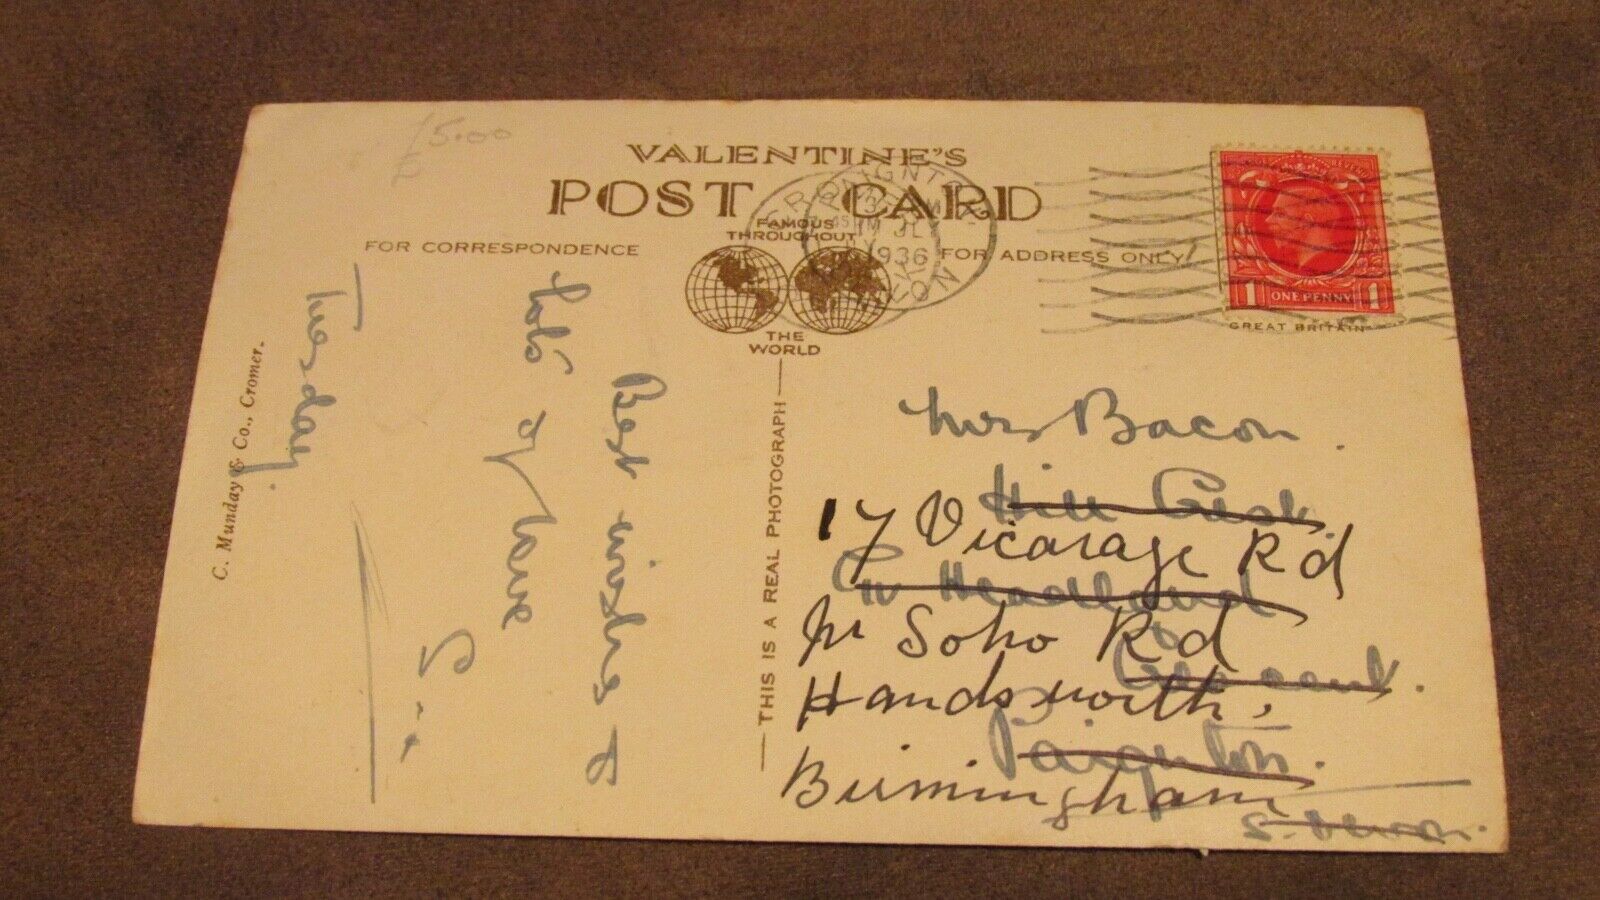 £5.00
VALENTINE'S
POST CARD
FAMOUS
THROUGHOUT
THE
WORLD
FOR CORRESPONDENCE
FOR ADDRESS ONLY
PAIGNTON
JLY
1936
DEVON
1 ONE PENNY 1
GREAT BRITAIN
C. Munday & Co., Cromer.
Tuesday.
Best wishes to
lots of love
THIS IS A REAL PHOTOGRAPH
Mrs Bacon.
Hill Crest
17 Vicarage Rd
Headland
Nr Soho Rd
Handsworth,
Paignton.
Birmingham
S. Devon.